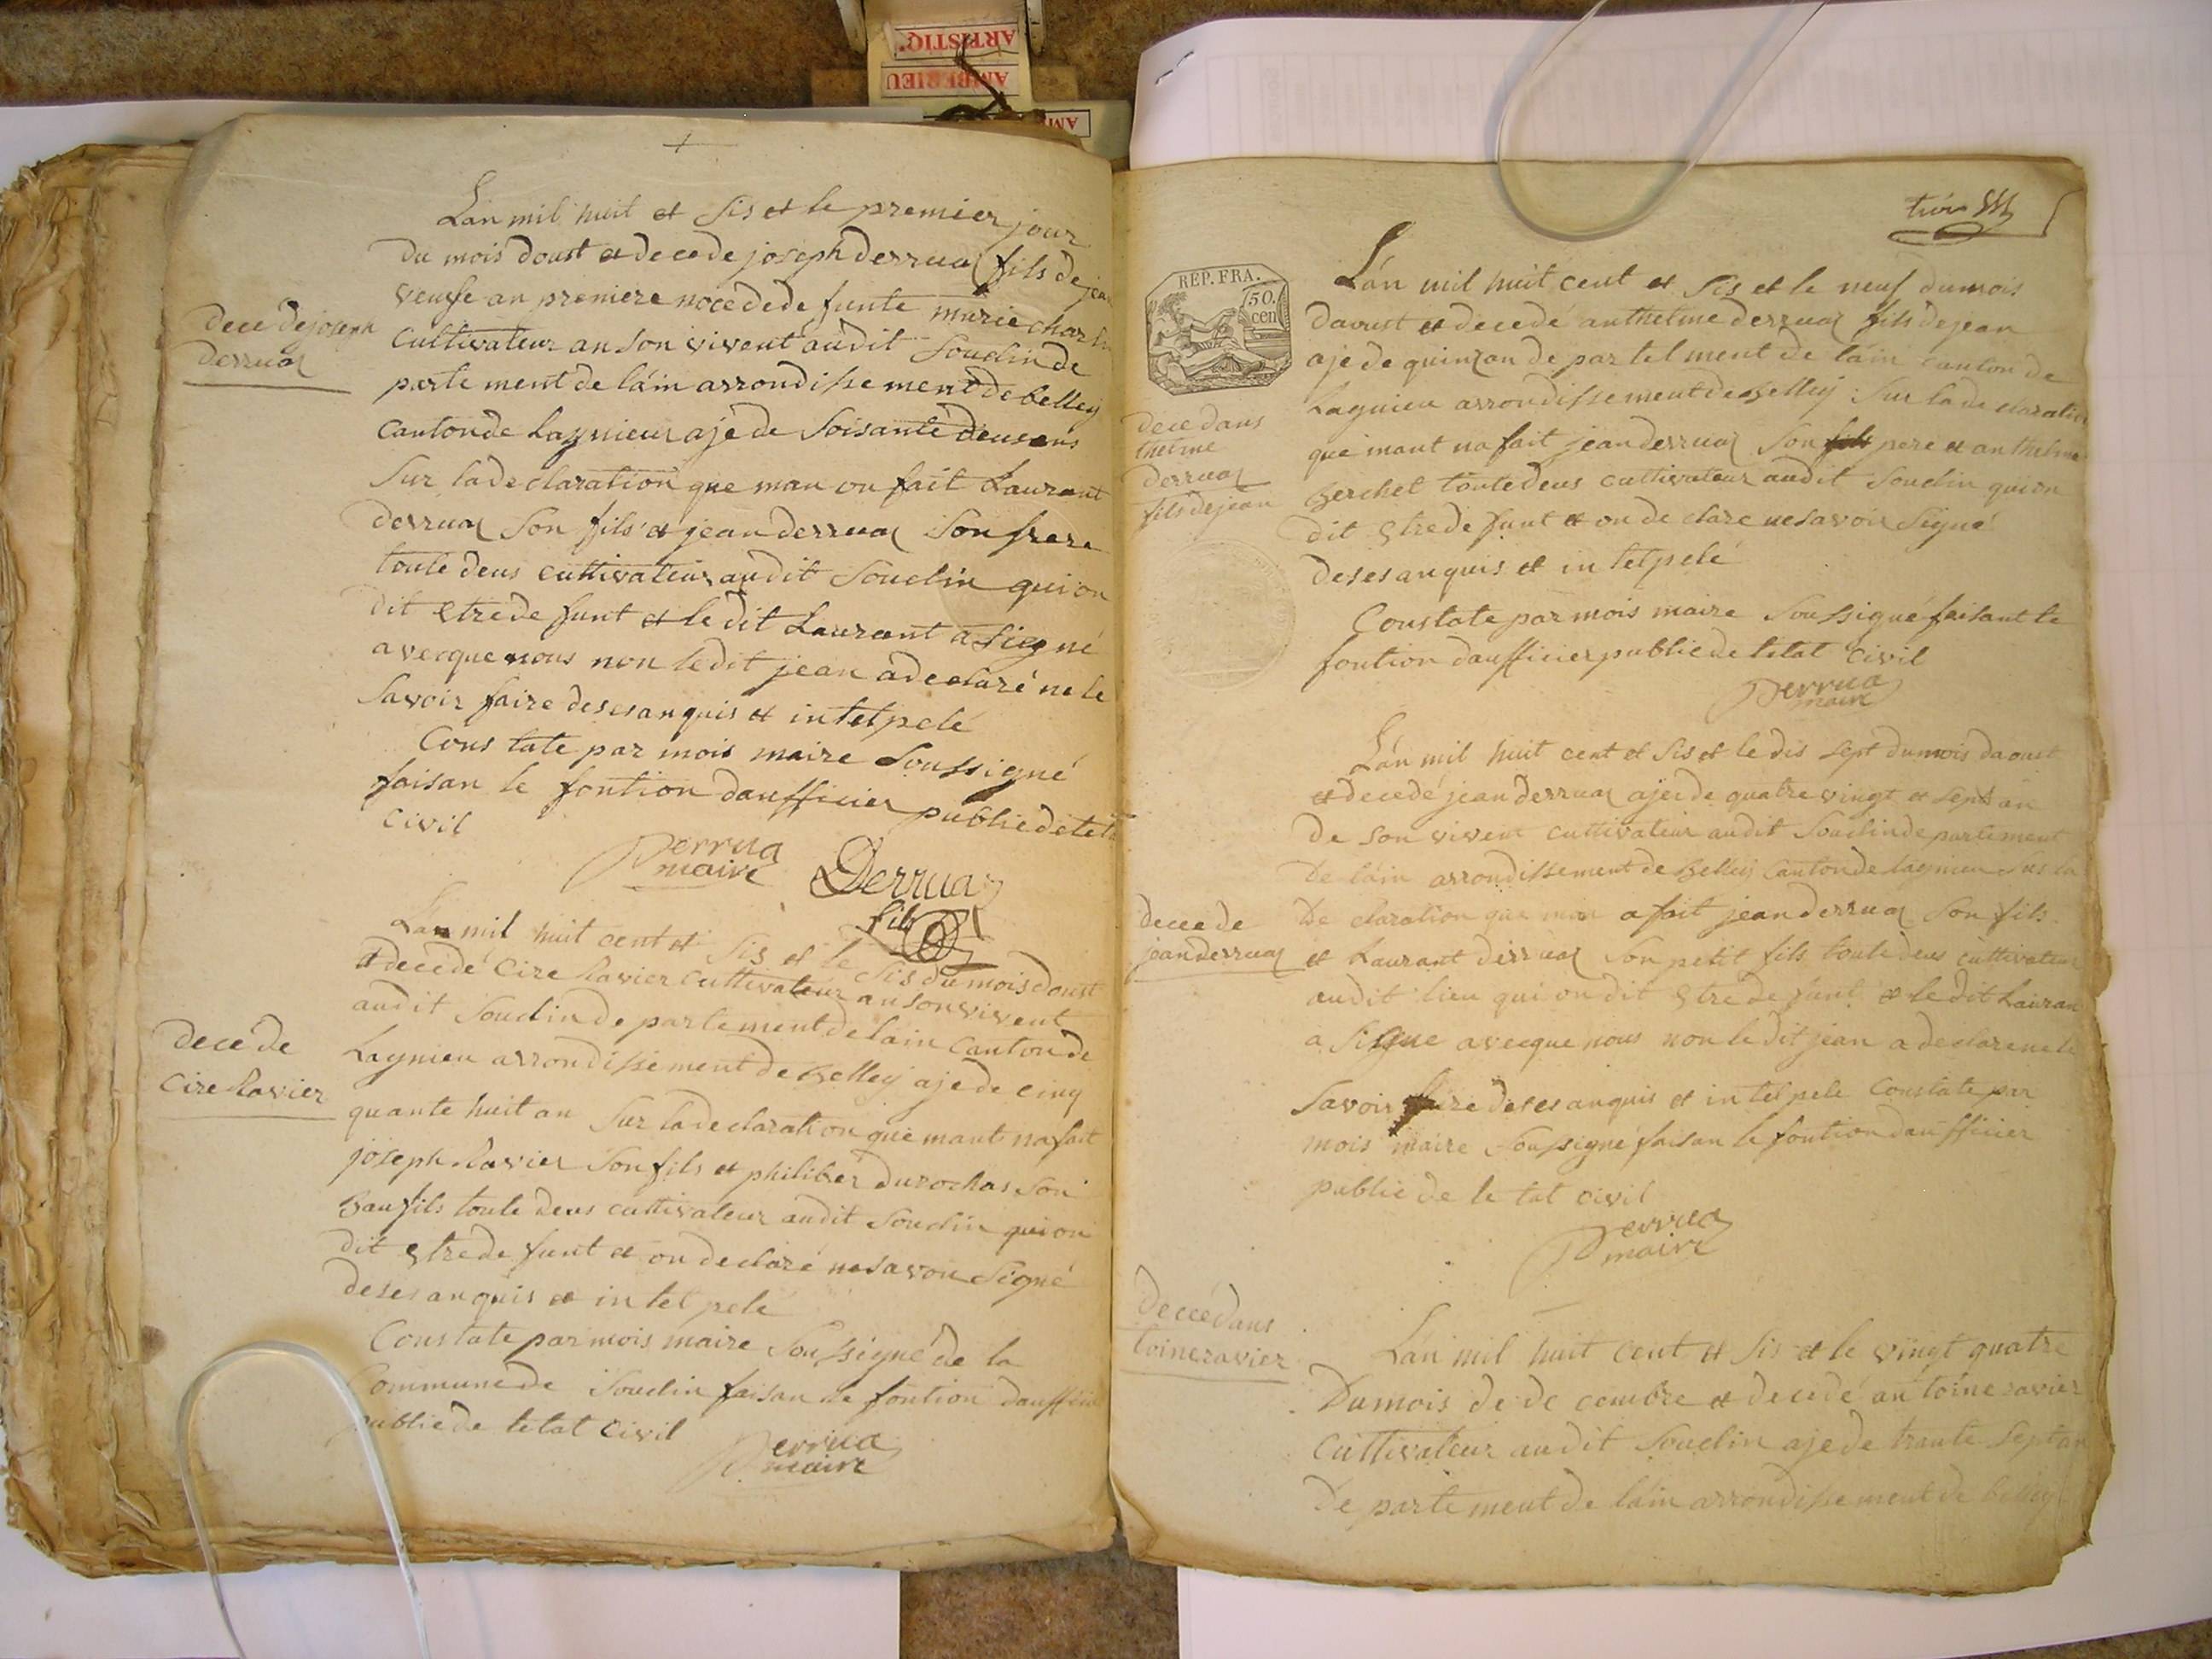 ARTISTIQ
AMBERIEU
AM
Lan mil huit et sis et le premier jour
du mois doust et decede joseph derruaz fils de jean
veufse an premiere noce dede funte marie
cultivateur an son vivent audit Soudin de
parte ment de lain arrondisse ment de belley
canton de Lagnieu aje de Soisante deus ans
Sur la declaration que mau on fait Laurant
derruaz Son fils et jean derruaz Son frere
toute deus cultivateur audit Soudin qui on
dit etre de funt et le dit Laurant a Signé
avecque nous non le dit jean a declaré ne le
Savoir faire de ses anquis et in tel pelé
Cons tate par mois maire Soussigné
faisan le fontion daufficier public de
civil
dece de joseph
derruaz
Derrua
maire
Derruaz
fils
Lan mil huit cent et Sis et le Sis du mois doust
et decedé Cire Ravier cultivateur an son vivent
audit Soudin de partement de lain canton de
Lagnieu arrondissement de Belley aje de cinq
quante huit an Sur la declaration que maut na fait
joseph Ravier Son fils et philiber durochas Son
Baufils toute deus cultivateur audit Soudin qui on
dit etre de funt et on declaré ne savoir Signé
de ses anquis et in tel pelé
Constate par mois maire Soussigné de la
Commune de Soudin faisan le fontion
public de letat civil
dece de
Cire Ravier
Derrua
maire
REP. FRA.
50.
cen
Lán mil huit cent et Sis et le neuf du mois
davust et decedé anthelme derruaz fils de jean
aje de quinz an de par tel ment de láin canton de
Lagnieu arrondissement de Belley Sur la de claration
que maut na fait jean derruaz Son fils pere et anthelme
Berchet toute deus cultivateur audit Soudin qui on
dit etre de funt et on de clare ne savoir Signé
de ses anquis et in tel pelé
Constate par mois maire Soussigné faisant le
fontion daufficier public de letat civil
dece dans
thelme
derruaz
fils de jean
Derrua
maire
Lán mil huit cent et Sis et le dis sept du mois daoust
et decedé jean derruaz aje de quatre vingt et sept an
de son vivent cultivateur audit Soudin departement
De láin arrondissement de Belley Canton de lagnieu Sus la
De claration que a fait jean derruaz Son fils
et Laurant derruaz Son petit fils toute deus cultivateur
audit lieu qui on dit etre de funt et le dit Lauran
a Signe avecque nous non le dit jean a declare ne le
Savoir faire de ses anquis et in tel pele Constate par
mois maire Soussigné faisan le fontion daufficier
public de le tat civil
decede
jean derruaz
Derrua
maire
Lán mil huit Cent et Sis et le vingt quatre
Du mois de de cembre et decedé antoine ravier
Cultivateur audit Soudin aje de trante Sept an
De parte ment de láin arrondisse ment de belley
Decedans
toine ravier